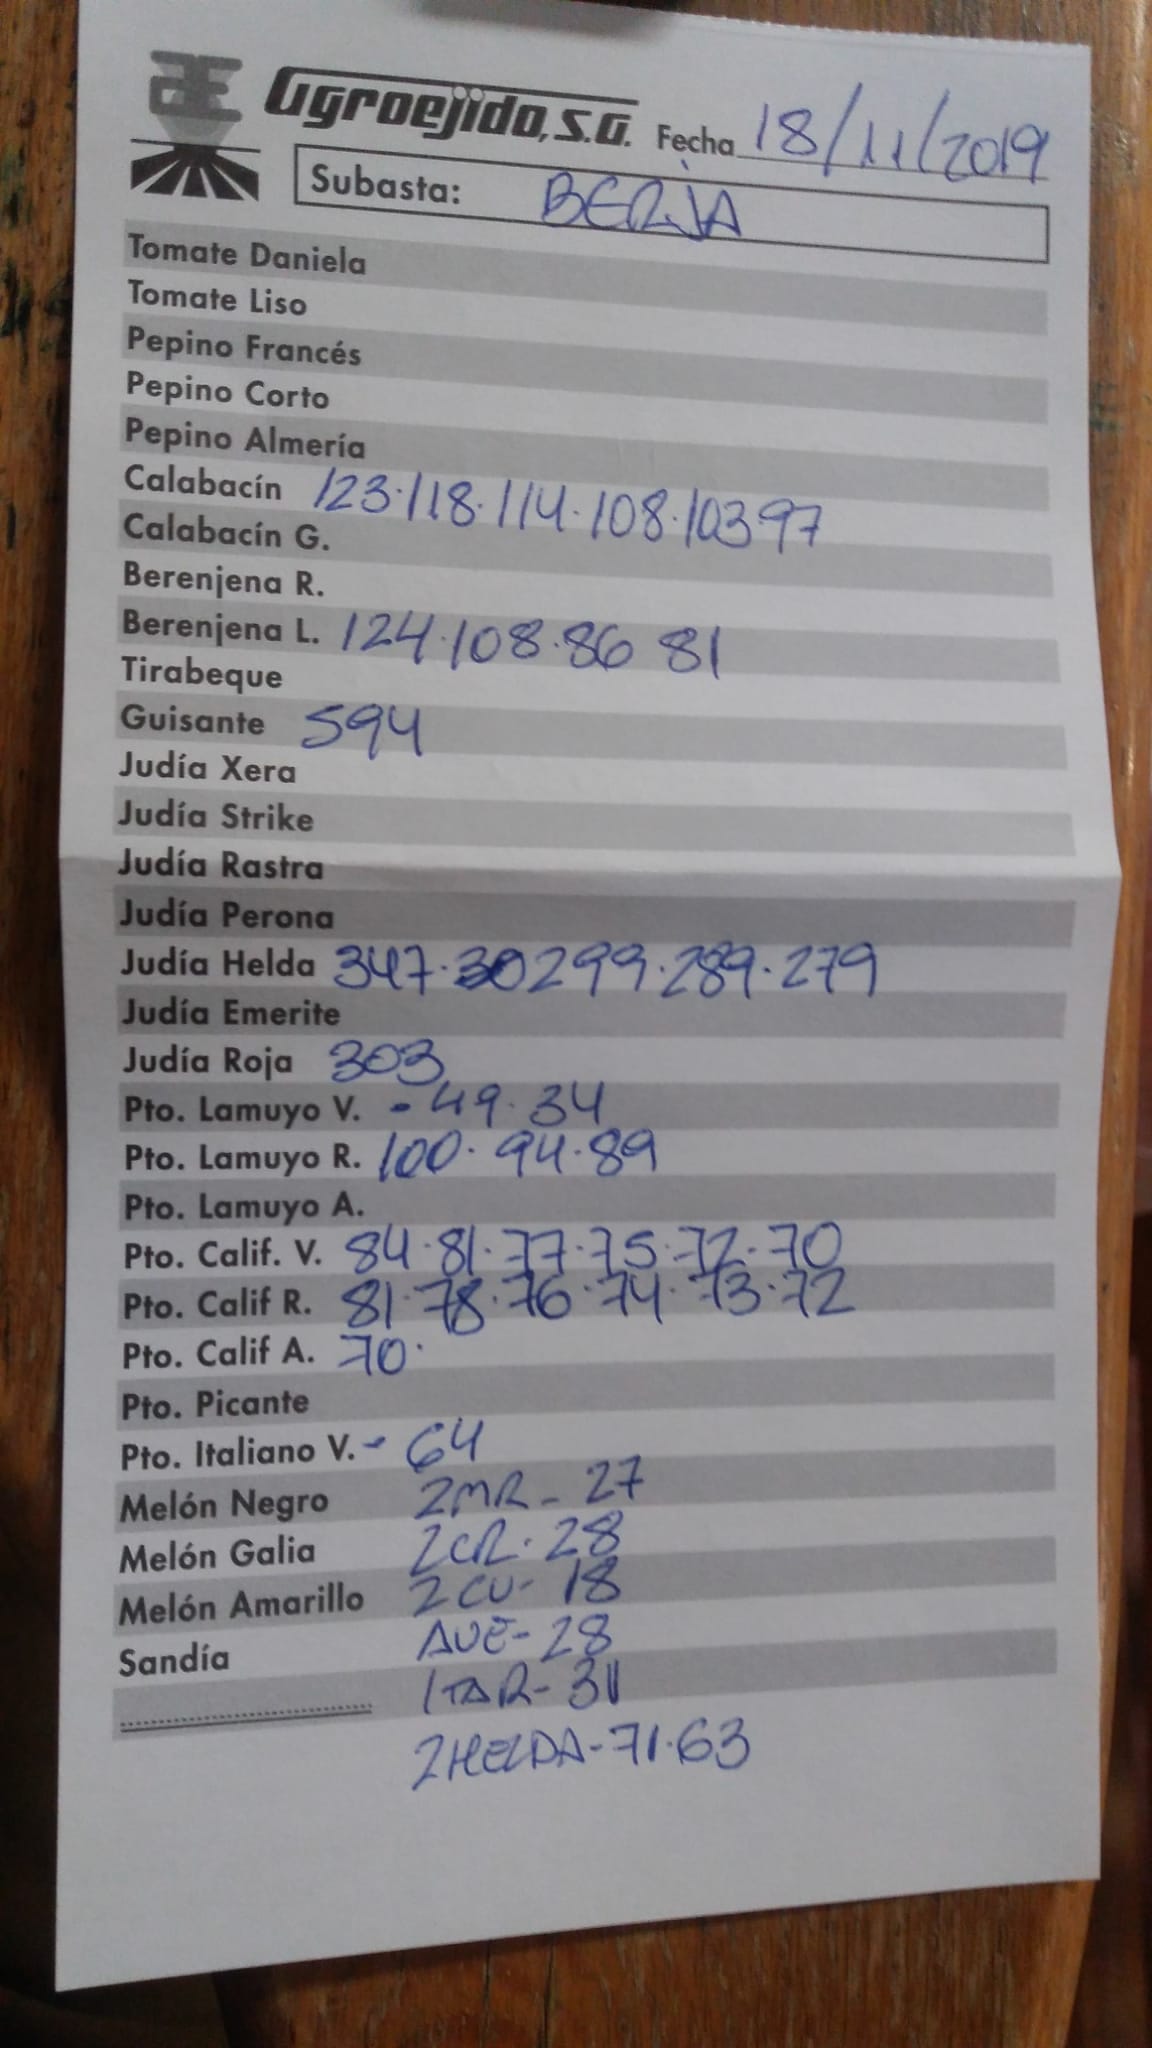 Agroejido, S.A. Fecha 18/11/2019
Subasta: BERJA
Tomate Daniela
Tomate Liso
Pepino Francés
Pepino Corto
Pepino Almería
Calabacín 123.118.114.108.103 97
Calabacín G.
Berenjena R.
Berenjena L. 124.108.86 81
Tirabeque
Guisante 594
Judía Xera
Judía Strike
Judía Rastra
Judía Perona
Judía Helda 347. 299.289.279
Judía Emerite
Judía Roja 303
Pto. Lamuyo V. - 49.34
Pto. Lamuyo R. 100.94.89
Pto. Lamuyo A.
Pto. Calif. V. 84.81.77.75.72.70
Pto. Calif R. 81.78.76.74.73.72
Pto. Calif A. 70.
Pto. Picante
Pto. Italiano V. - 64
Melón Negro 2MR - 27
Melón Galia 2CR. 28
Melón Amarillo 2CU - 18
Sandía AUE - 28
ITAR - 31
2HELDA - 71.63